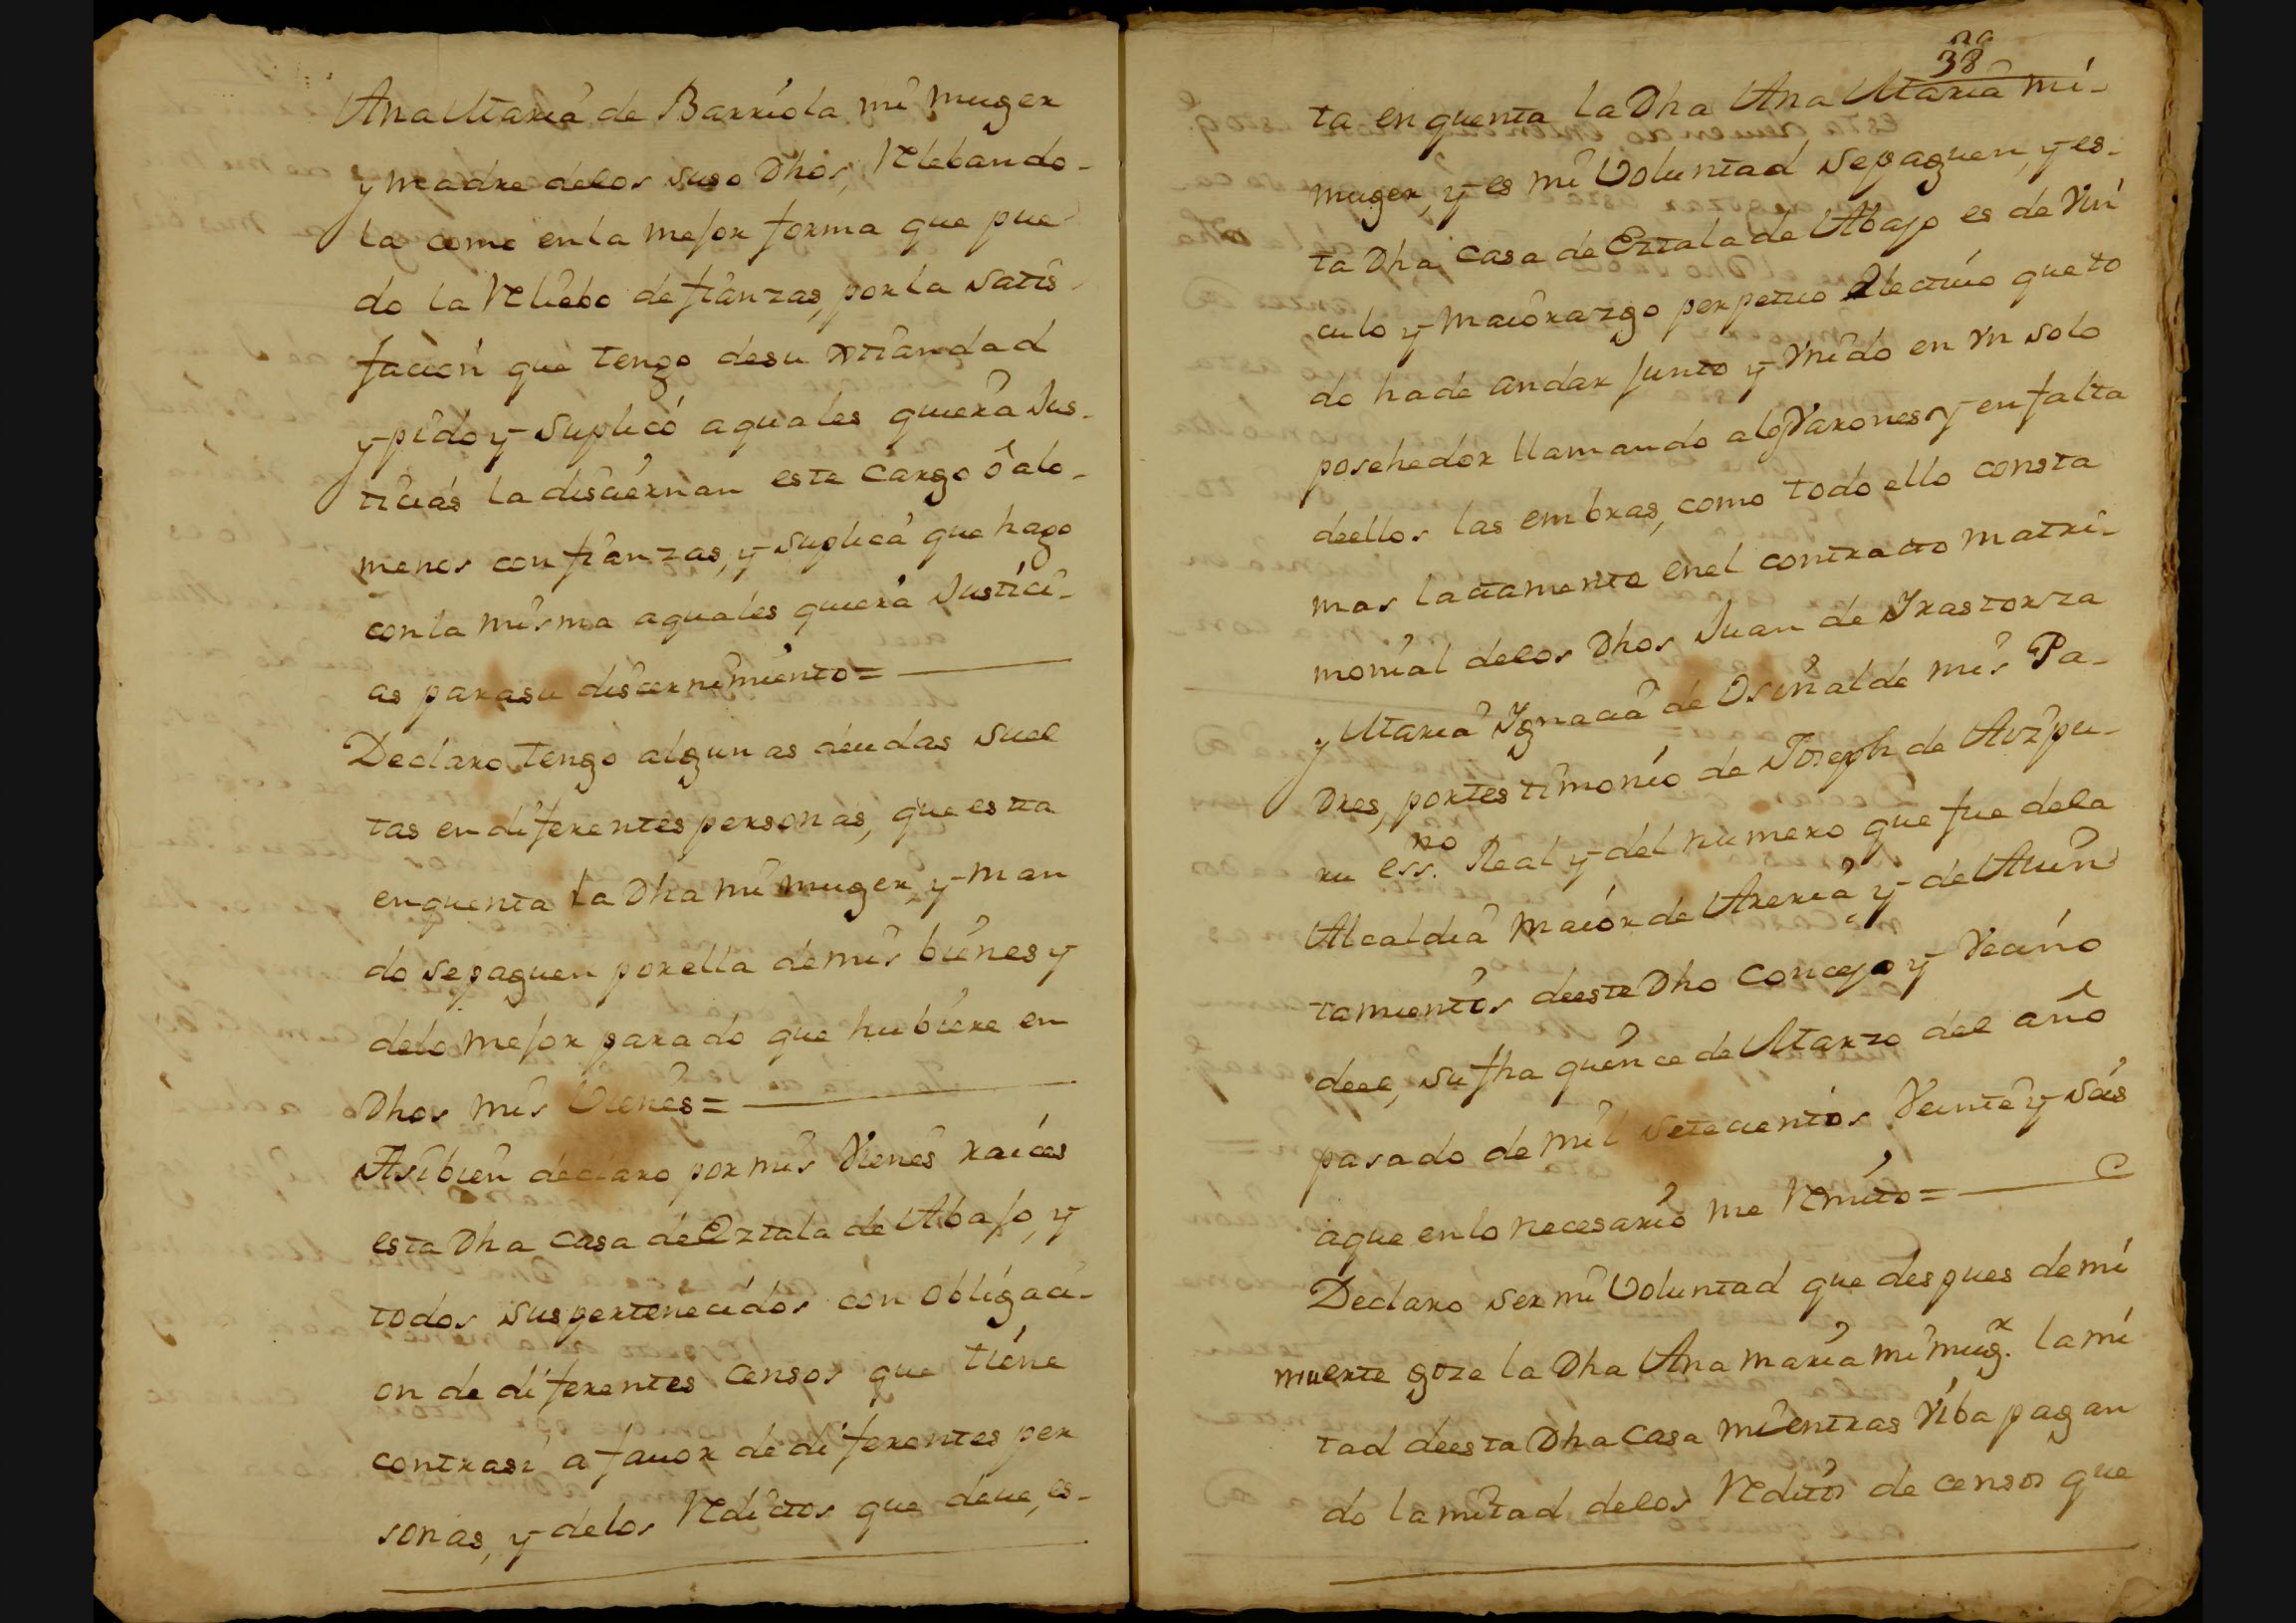 Ana Maria de Barriola mi muger
y madre delos suso Dhos, Relebando-
la como enla mejor forma que pue
do la Reliebo defianzas, porla satis-
facion que tengo desu xptiandad
y pido y suplicó aquales quiera Jus-
ticias la disciernan este cargo ô alo-
menos con fianzas, y suplica que hago
conla misma aquales quiera Justici-
as parasu discernimiento=
Declaro tengo algunas deudas suel
tas en diferentes personas, que esta
enquenta la Dha mi muger, y man
do sepaguen porella demis bienes y
delo mejor parado que hubiere en
Dhos mis Vienes=
Asibien declaro por mis Vienes raices
esta Dha casa de Eztala de Abajo, y
todos suspertenecidos con obligaci-
on de diferentes censos que tiene
contrasi a fauor de diferentes per
sonas, y delos Reditos que deue, es-
38
ta enquenta la Dha Ana Maria mi-
muger, y es mi Voluntad sepaguen, y es-
ta Dha casa de Eztala de Abajo es de Vin
culo y maiorazgo perpetuo electiuo que to
do hade andar junto y Vnido en Vn solo
posehedor llamando alos Varones, y en falta
deellos las embras, como todo ello consta
mas lactamente enel contracto matri-
monial delos Dhos Juan de Yrastorza
y Maria Ygnacia de Osinalde mis Pa-
Dres, portestimonio de Joseph de Aozpu-
ru ess.no Real y del numero que fue dela
Alcaldia maior de Areria y de Aiun
tamientos deeste Dho Concejo y Vecino
deel, su fha quince de Marzo del año
pasado de mil setecientos Veinte y seis
aque enlo necesario me Remito=
Declaro ser mi Voluntad que despues demi
muerte goze la Dha Ana maria mi mug.r la mi
tad deesta Dha casa mientras Viba pagan
do la mitad delos Reditos de censos que